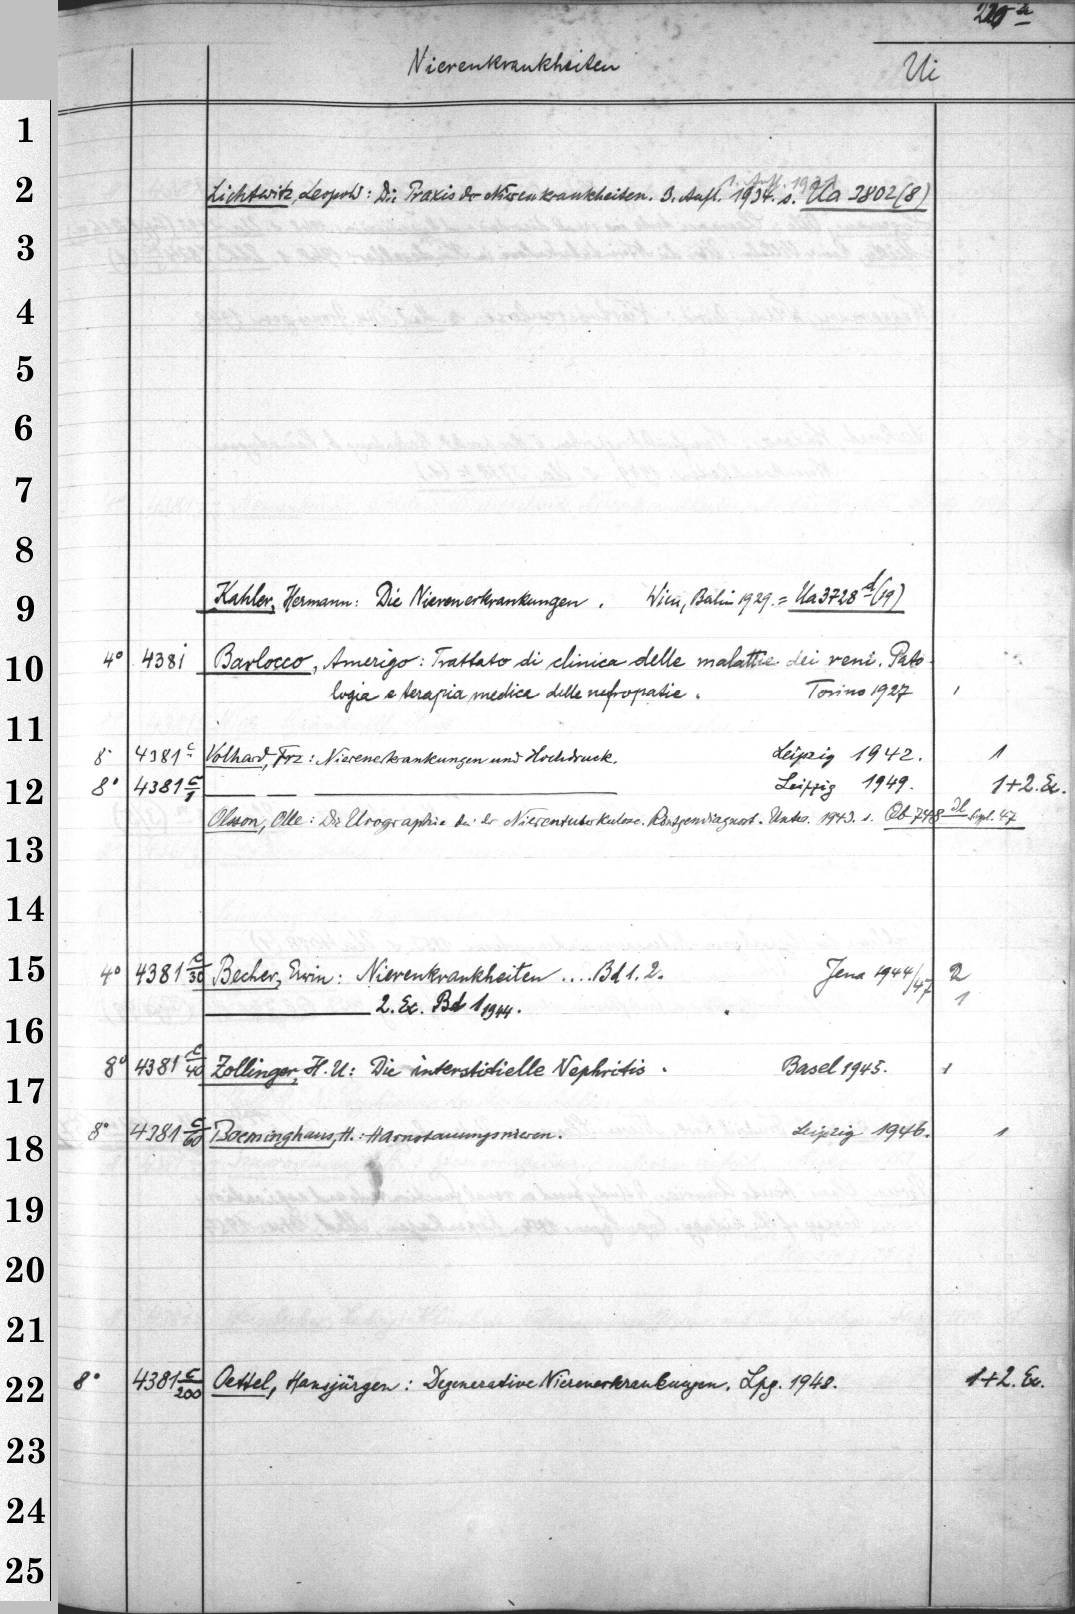 Nierenkrankheiten Ui
1
2 Lichtwitz, Leopold: Die Praxis der Nierenkrankheiten. 3. Aufl. 1934. s. Ua 3802(8)
3
4
5
6
7
8
9 Kahler, Hermann: Die Nierenerkrankungen. Wien, Berlin 1929. = Ua 3728 d (19)
10 4° 4381 Barlocco, Amerigo: Trattato di clinica delle malattie dei reni. Pato-
logia e terapia medica delle nefropatie. Torino 1927 1
11
8° 4381 c Volhard, Frz: Nierenerkrankungen und Hochdruck. Leipzig 1942. 1
12 8° 4381 c/1 — — — Leipzig 1949. 1+2. Ex.
Olsson, Olle: Die Urographie bei der Nierentuberkulose. Röntgendiagnost. Unters. 1943. s. Ob 7498 Supl. 47
13
14
15 4° 4381 c/30 Becher, Erwin: Nierenkrankheiten .... Bd 1. 2. Jena 1944/47 2
— 2. Ex. Bd 1 1944. 1
16
8° 4381 c/40 Zollinger, H. U: Die interstitielle Nephritis. Basel 1945. 1
17
18 8° 4381 c/60 Boeminghaus, H.: Harnstauungsnieren. Leipzig 1946. 1
19
20
21
22 8° 4381 c/200 Oettel, Hansjürgen: Degenerative Nierenerkrankungen. Lpg. 1948. 1+2. Ex.
23
24
25